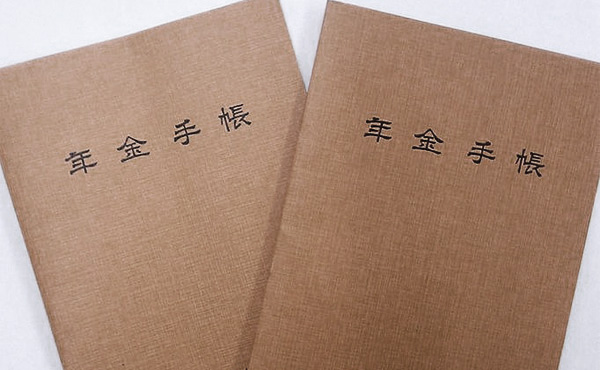 年金手帳
年金手帳